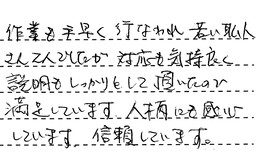 作業も手早く行なわれ若い職人
さん2人でしたが対応も気持良く
説明もしっかりとして頂いたので
満足しています。人柄にも感心
しています。信頼しています。